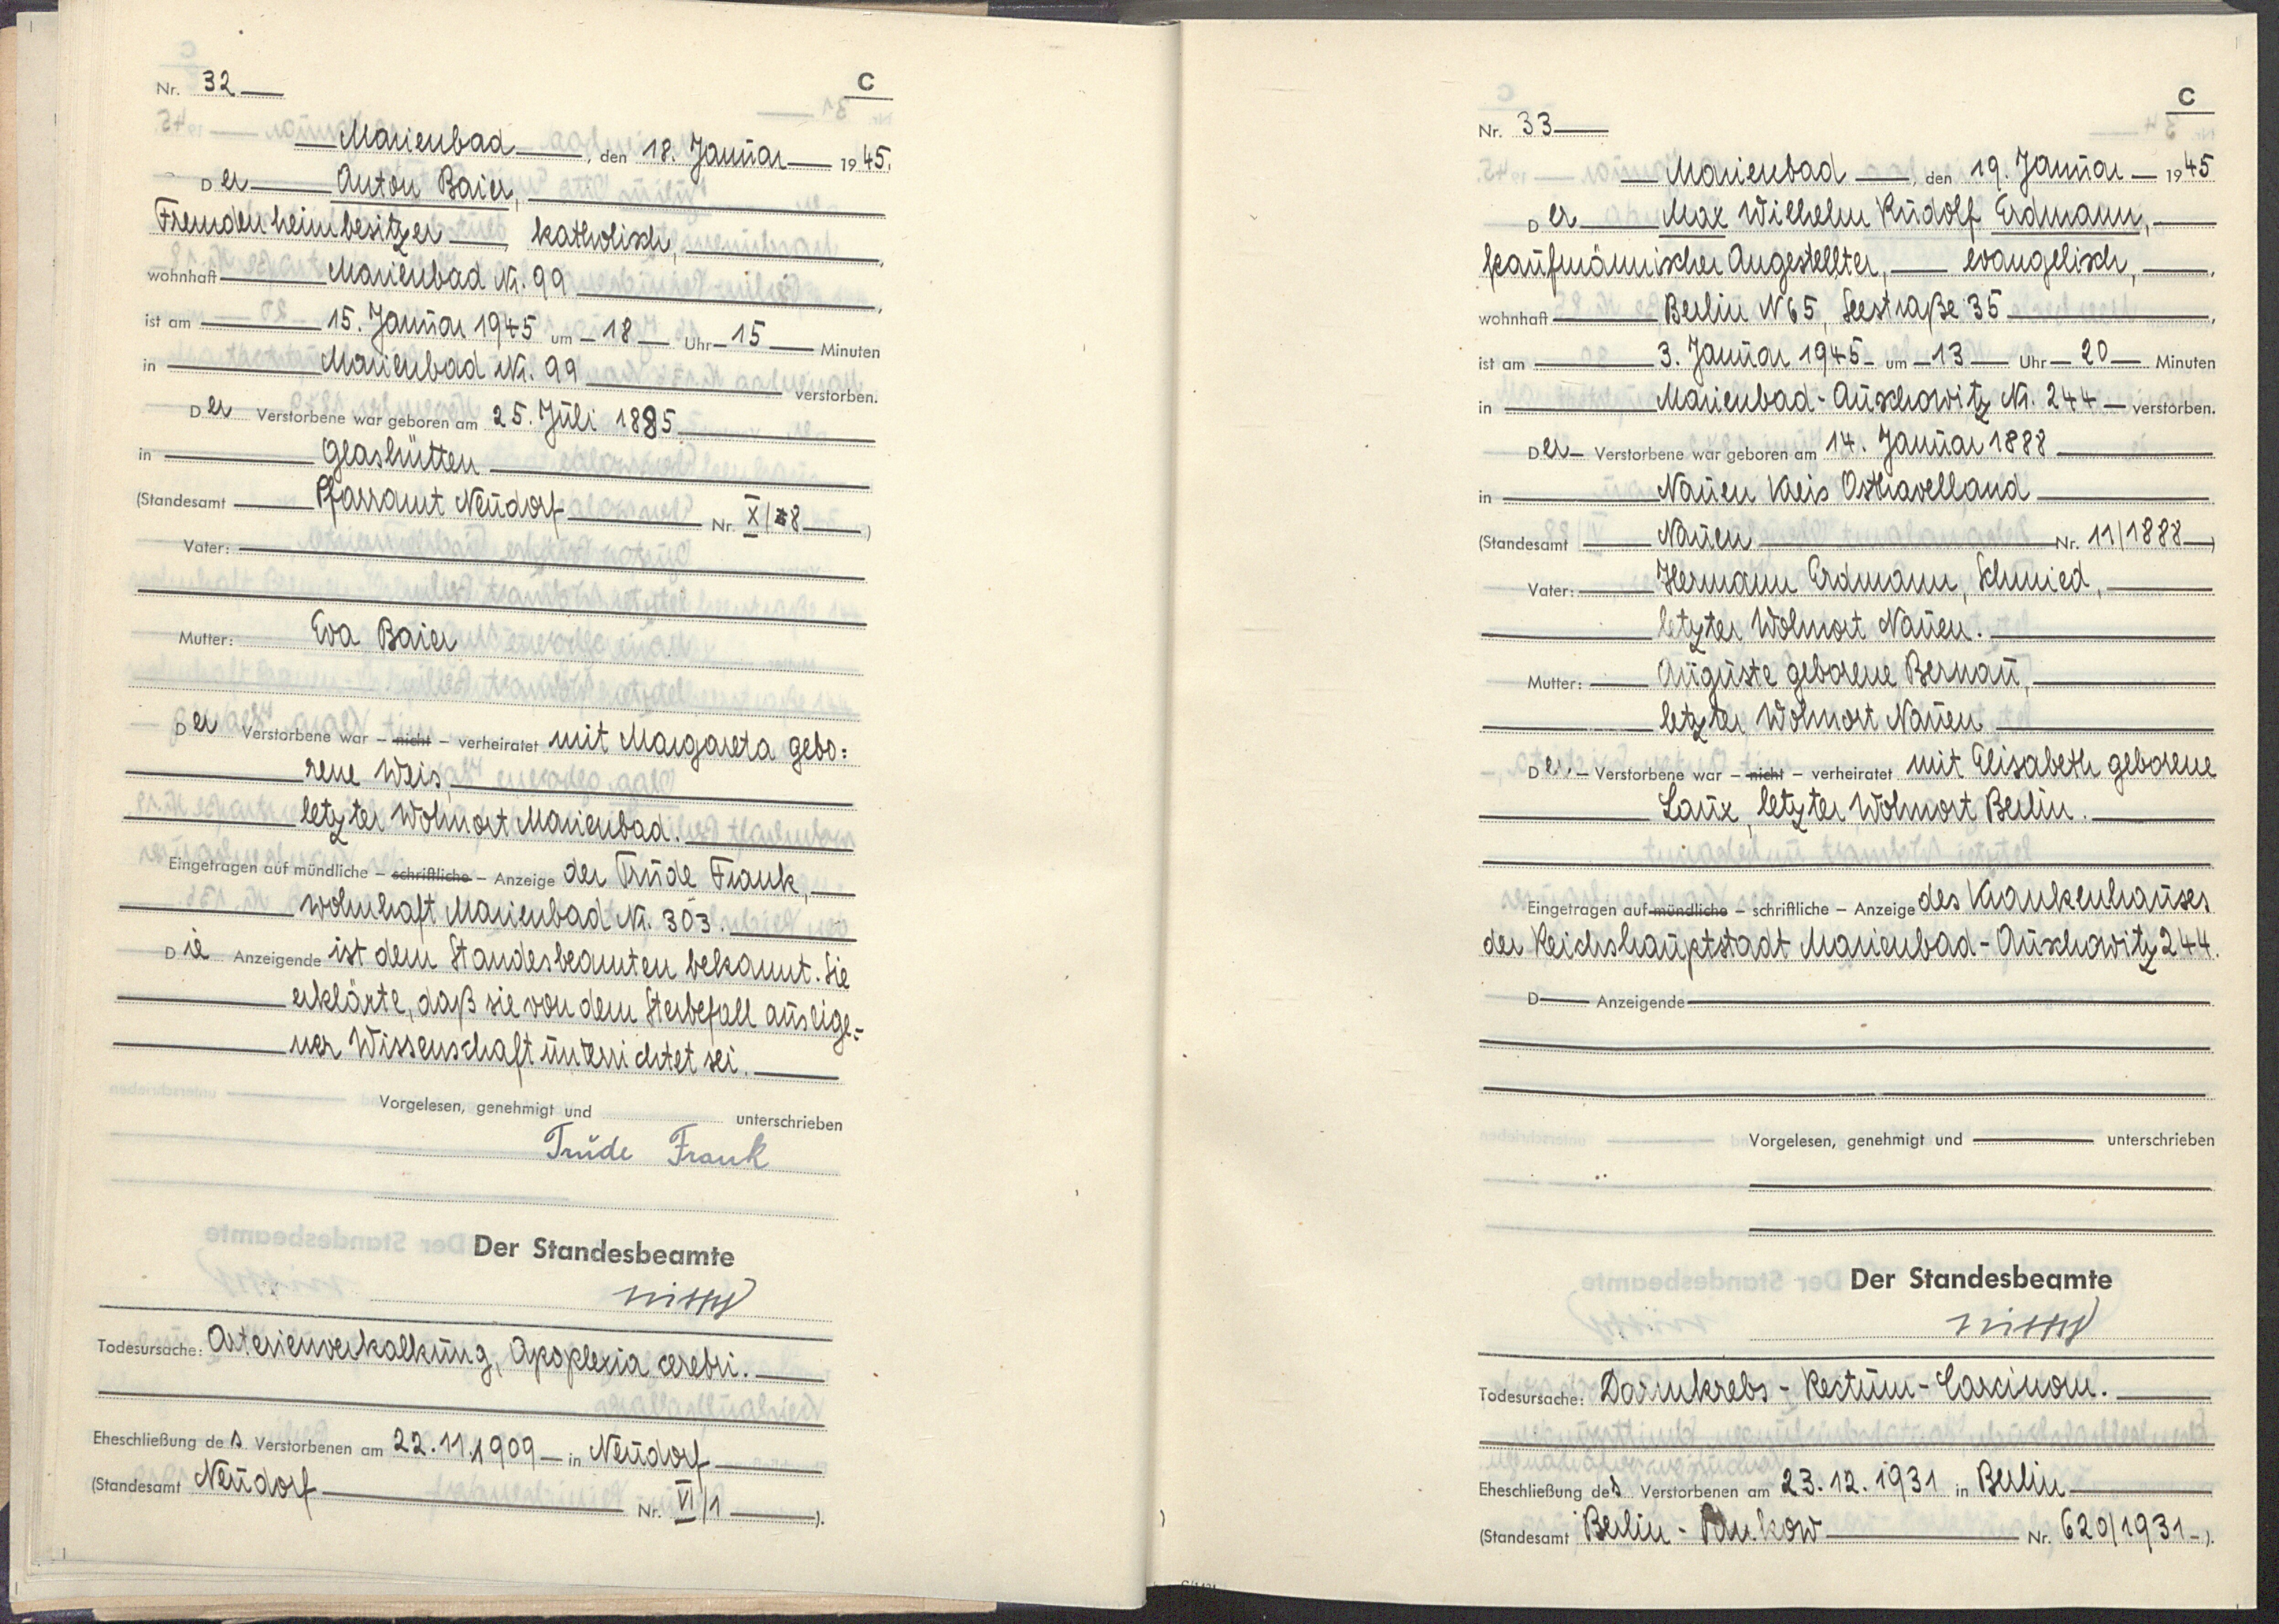 C
Nr. 32
Marienbad, den 18. Januar 1945.
Der Anton Baier,
Fremdenheimbesitzer katholisch,
wohnhaft Marienbad Nr. 99,
ist am 15. Januar 1945 um 18 Uhr 15 Minuten
in Marienbad Nr. 99 verstorben.
Der Verstorbene war geboren am 25. Juli 1885
in Glashütten
(Standesamt Pfarramt Neudorf Nr. X/8)
Vater:
Mutter: Eva Baier
Der Verstorbene war – nicht – verheiratet mit Margareta gebo:
rene Weis,
letzter Wohnort Marienbad.
Eingetragen auf mündliche – schriftliche – Anzeige der Trude Frank,
wohnhaft Marienbad Nr. 303.
Die Anzeigende ist dem Standesbeamten bekannt. Sie
erklärte, daß sie von dem Sterbefall aus eige-
ner Wissenschaft unterrichtet sei.
Vorgelesen, genehmigt und unterschrieben
Trude Frank
Der Standesbeamte
Todesursache: Arterienverkalkung, Apoplexia cerebri.
Eheschließung des Verstorbenen am 22.11.1909 in Neudorf
(Standesamt Neudorf Nr. VI/1).
C
Nr. 33
Marienbad, den 19. Januar 1945
Der Max Wilhelm Rudolf Erdmann,
kaufmännischer Angestellter, evangelisch,
wohnhaft Berlin N65, Seestraße 35,
ist am 3. Januar 1945 um 13 Uhr 20 Minuten
in Marienbad-Auschowitz Nr. 244 verstorben.
Der Verstorbene war geboren am 14. Januar 1888
in Nauen Kreis Osthavelland
(Standesamt Nauen Nr. 11/1888)
Vater: Hermann Erdmann, Schmied,
letzter Wohnort Nauen.
Mutter: Auguste geborene Bernau,
letzter Wohnort Nauen
Der Verstorbene war – nicht – verheiratet mit Elisabeth geborene
Laux, letzter Wohnort Berlin.
Eingetragen auf mündliche – schriftliche – Anzeige des Krankenhauses
der Reichshauptstadt Marienbad-Auschowitz 244.
D Anzeigende
Vorgelesen, genehmigt und unterschrieben
Der Standesbeamte
Todesursache: Darmkrebs - Rectum-Carcinom.
Eheschließung des Verstorbenen am 23.12.1931 in Berlin
(Standesamt Berlin-Pankow Nr. 620/1931).